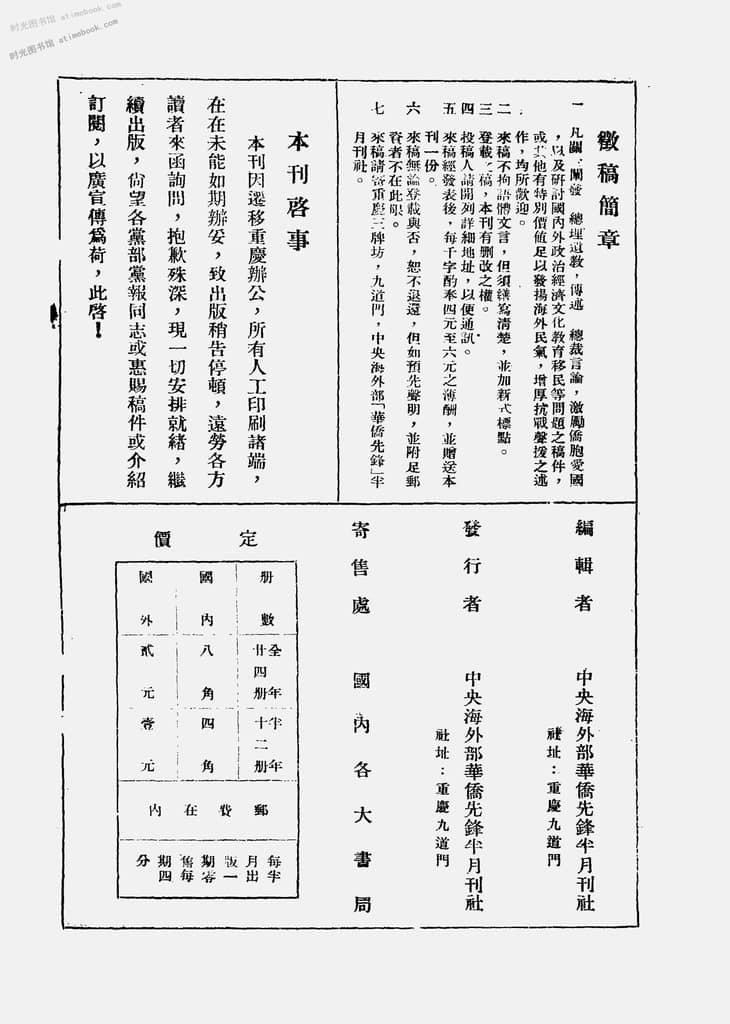 时光图书馆 atimebook.com
时光图书馆 atimebook.com
徵稿簡章
一 凡闡發 總理遺教，傳述 總裁言論，激勵僑胞愛國
，以及研討國內外政治經濟文化教育移民等問題之稿件，
或其他有特別價値足以發揚海外民氣，增厚抗戰聲援之述
作，均所歡迎。
二 來稿不拘語體文言，但須繕寫清楚，並加新式標點。
三 登載之稿，本刊有删改之權。
四 投稿人請開列詳細地址，以便通訊。
五 來稿經發表後，每千字酌奉四元至六元之薄酬，並贈送本
刊一份。
六 來稿無論登載與否，恕不退還，但如預先聲明，並附足郵
資者不在此限。
七 來稿請寄重慶三牌坊，九道門，中央海外部「華僑先鋒」半
月刊社。
本刊啓事
本刊因遷移重慶辦公，所有人工印刷諸端，
在在未能如期辦妥，致出版稍告停頓，遠勞各方
讀者來函詢問，抱歉殊深，現一切安排就緒，繼
續出版，尙望各黨部黨報同志或惠賜稿件或介紹
訂閱，以廣宣傳爲荷，此啓！
編輯者 中央海外部華僑先鋒半月刊社
社址：重慶九道門
發行者 中央海外部華僑先鋒半月刊社
社址：重慶九道門
寄售處 國內各大書局
定價
册數 全年廿四册 半年十二册
國內 八角 四角
國外 貳元 壹元
郵費在內
每半月出版一期零售每期四分